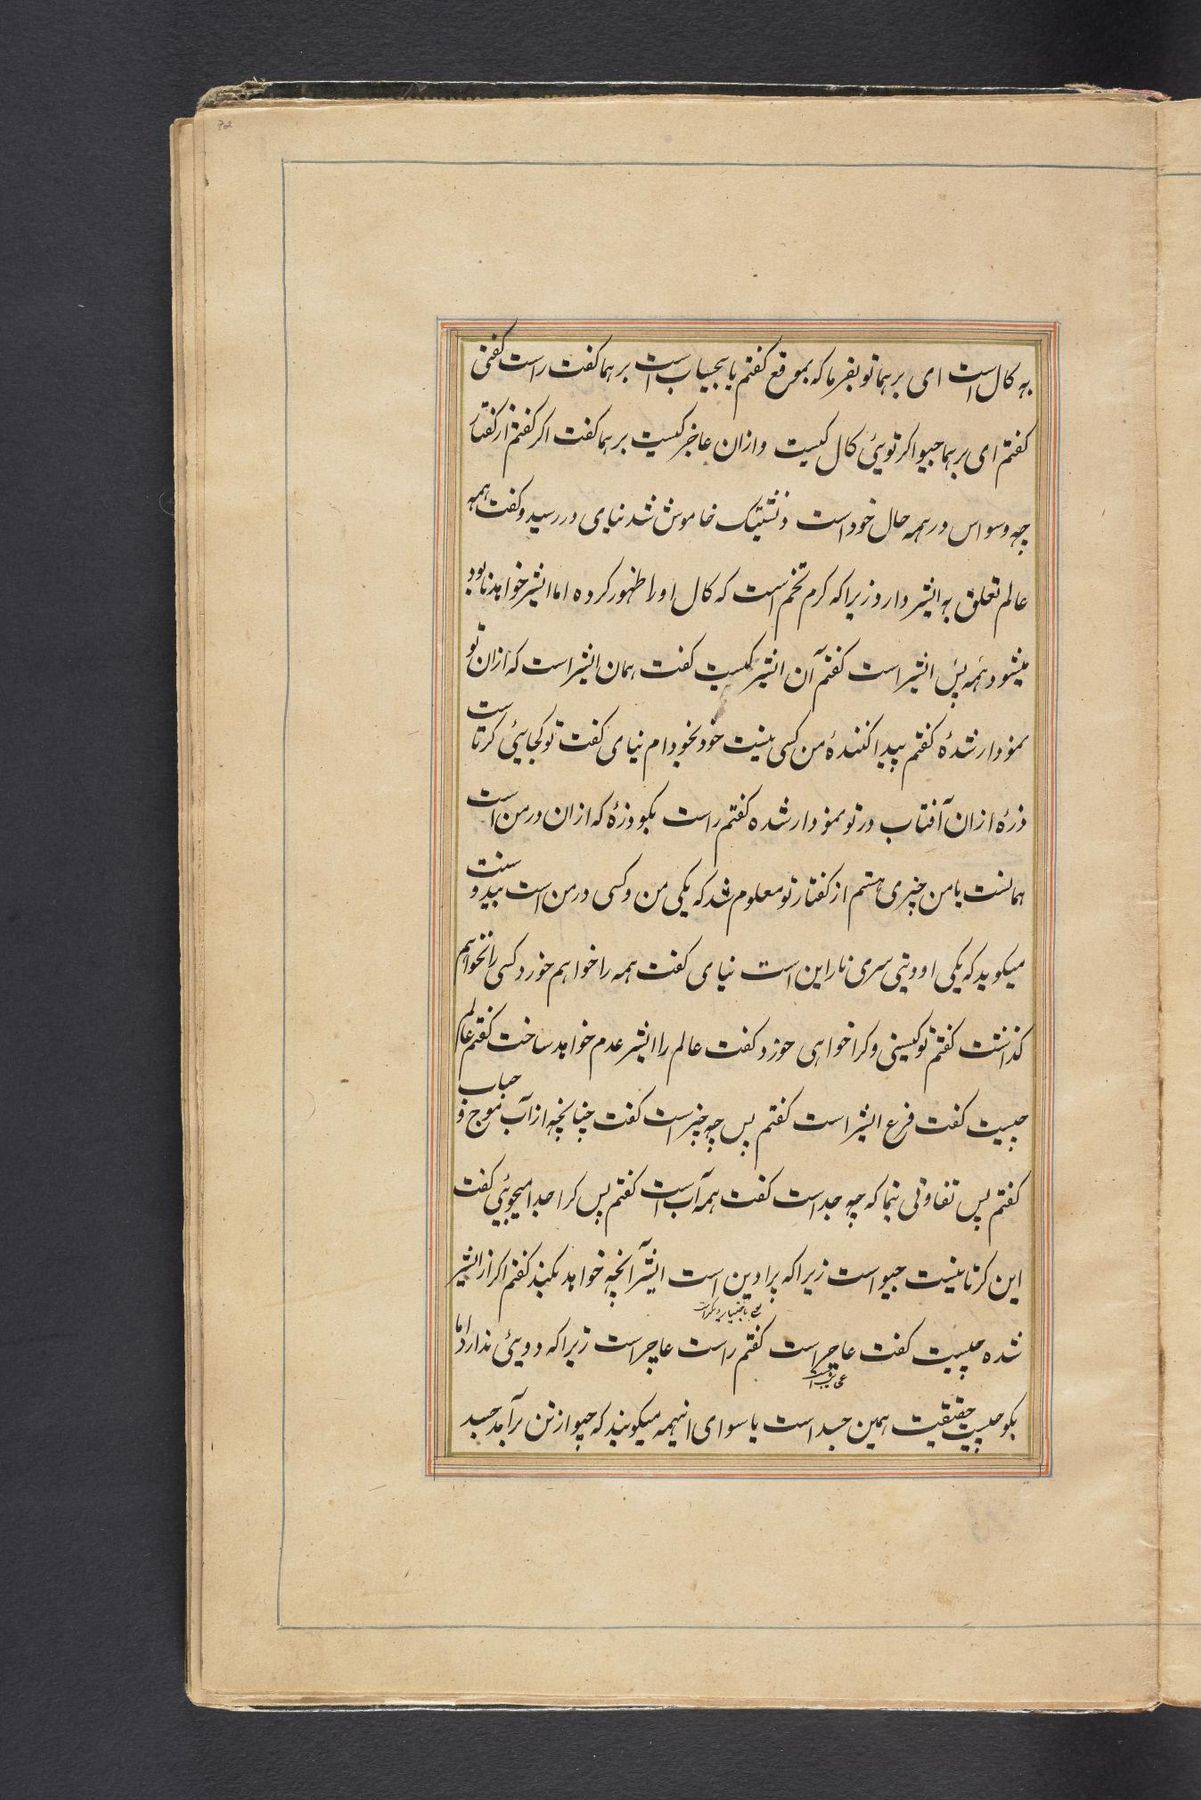 به کال است ای برهما تو بفرما که بموقع کفتم یا بیجیاب است برهما کفت راست کفتی
کفتم ای برهما جیو اکر تویئ کال کیست و ازان عاجز کیست برهما کفت اکر کفتم از کفتار
چه وسواس در همه حال خود است خاموش شد نیای در رسید و کفت همه
عالم تعلق به ایشر دارد زیرا که کرم تخم است که کال او را ظهور کرده اما ایشر خواهد نابود
میشود همه پس ایشر است کفتم آن ایشر کیست کفت همان ایشر است که ازان تو
نمودار شدهٔ کفتم پیدا کنندهٔ من کسی نیست خود بخود ام نیای کفت تو کجایئ کرتا است
ذرهٔ ازان آفتاب در تو نمودار شده کفتم راست بکو ذرهٔ که ازان در من است
همانست یا من چیزی هستم از کفتار تو معلوم شد که یکی من و کسی در من است بید و سنت
میکوید که یکی او دوتی سری ناراین است نیای کفت همه را خواهم خورد کسی را نخواهم
کذاشت کفتم تو کیستی و کرا خواهی خورد کفت عالم را ایشر عدم خواهد ساخت کفتم عالم
چیست کفت فرع ایشر است کفتم پس چه چیز است کفت چنانچه از آب موج و حباب
کفتم پس تفاوتی بنما که چه جداست کفت همه آب است کفتم پس کرا جدا میجویئ کفت
این کرتا نیست جیو است زیرا که پرادین است ایشر آنچه خواهد بکند کفتم اکر از ایشر
شده چیست کفت عاجز است کفتم راست عاجز است زیرا که دویئ ندارد اما
بکو چیست حقیقت همین جسد است یا سوای اینهمه میکویند که جیو از تن برآمد جسد